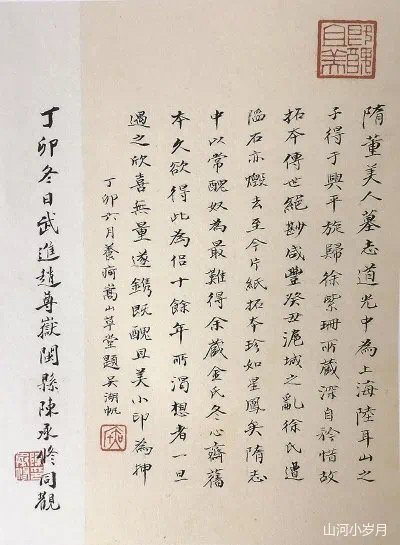 既醜且美
隋董美人墓志道光中為上海陸耳山之
子得于興平旋歸徐紫珊所藏深自矜惜故
拓本傳世絕尠咸豐癸丑滬城之亂徐氏遭
阨石亦燬去至今片紙拓本珍如星鳳矣隋志
中以常醜奴為最難得余藏金氏冬心齋舊
本久欲得此為侶十餘年所渴想者一旦
遇之欣喜無量遂鐫既醜且美小印為押
丁卯六月養疴嵩山草堂題吳湖帆
丁卯冬日武進趙尊嶽閩縣陳承修同觀
山河小岁月